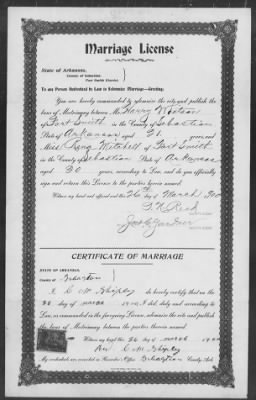 Marriage License
State of Arkansas,
County of Sebastian
Fort Smith District
To any Person Authorized by Law to Solemnize Marriage—Greeting:
You are hereby commanded to solemnize the rite and publish the
bans of Matrimony between Mr. Harry
of Fort Smith in the County of Sebastian
State of Arkansas aged 21 years, and
Miss Mitchell of Fort Smith
in the County of Sebastian State of Arkansas
aged 20 years, according to Law, and do you officially
sign and return this License to the parties herein named.
Witness my hand and official seal this 26 day of March
CERTIFICATE OF MARRIAGE
STATE OF ARKANSAS,
County of Sebastian
I, C M Shipley do hereby certify that on the
26 day of March I did, duly and according to
Law, as commanded in the foregoing License, solemnize the rite and publish
the bans of Matrimony between the parties therein named.
Witness my hand this 26 day of March
Rev C M Shipley
My credentials are recorded in Recorder's Office Sebastian County, Ark.